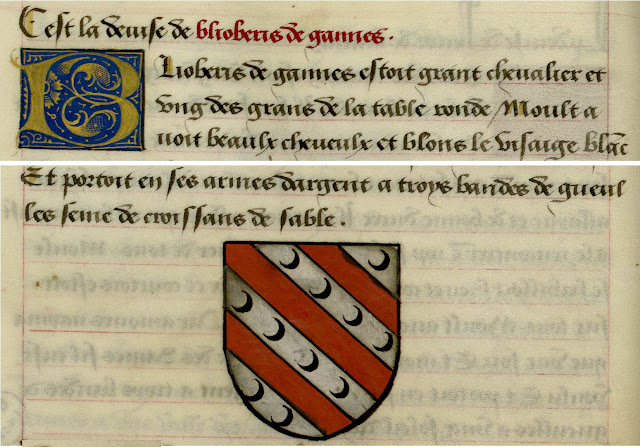 Cest la deuise de blioberis de gannes.
Blioberis de gannes estoit grant cheualier et
vng des grans de la table ronde Moult a
uoit beaulx cheueulx et blons le visaige blāc
Et portoit en ses armes dargent a troys bandes de gueul
les seme de croissans de sable.